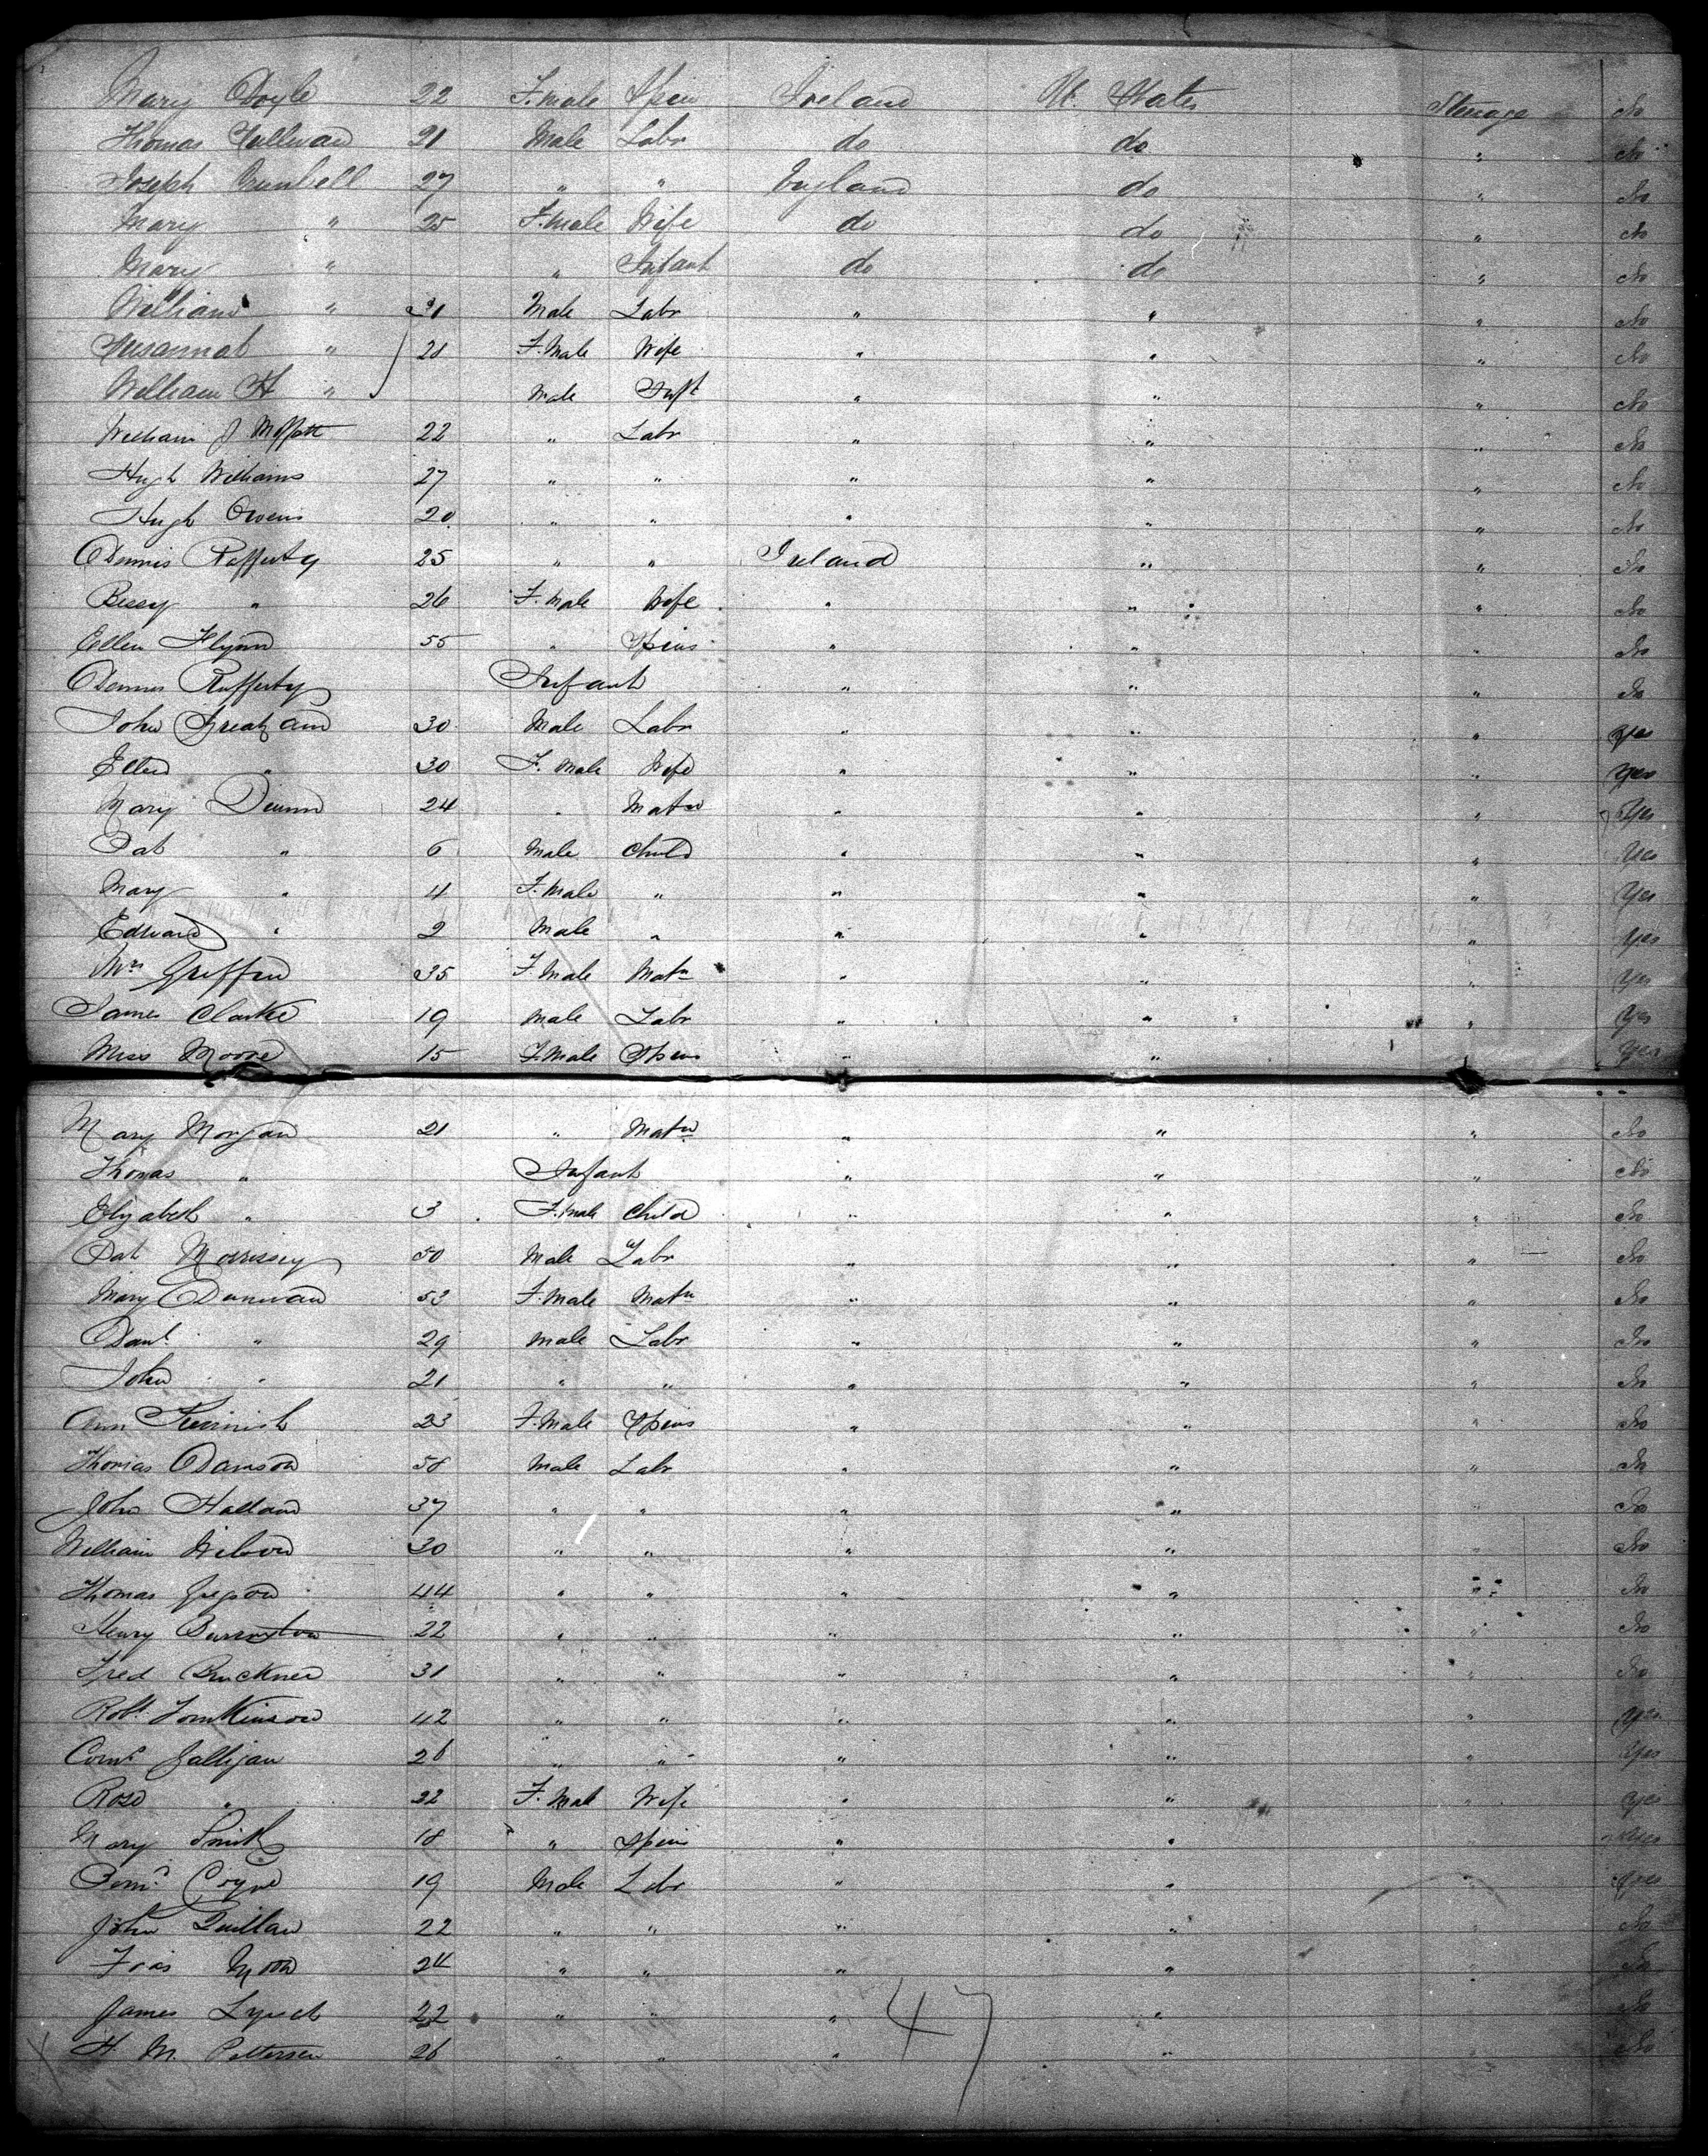 Mary Doyle 22 F.male Spin Ireland U. States Steerage No
Thomas Sullivan 21 Male Labr do do " No
Joseph 27 " " England do " No
Mary " 25 F.male Wife do do " No
Mary " " Infant do do " No
William " 31 Male Labr " " " No
Susannah " 28 F.Male Wife " " " No
William H " Male Inft " " " No
William J Moffatt 22 " Labr " " " No
Hugh Williams 27 " " " " " No
Hugh Owens 20 " " " " " No
Dennis Rafferty 25 " " Ireland " " No
Bessy " 26 F.Male Wife " " " No
Ellen Flynn 55 " Spins " " " No
Dennis Rafferty Infant " " " No
John 30 Male Labr " " " yes
Ellen " 30 F. Male Wife " " " yes
Mary Dunn 24 " Matn " " " Yes
Pat " 6 Male Child " " " Yes
Mary " 4 F.Male " " " " Yes
Edward " 2 Male " " " " Yes
Mrs Griffin 35 F.Male Matn " " " Yes
James Clarke 19 Male Labr " " " Yes
Miss Moore 15 F.Male Spins " " " Yes
Mary Morgan 21 " Matn " " " No
Thomas " Infant " " " No
Elizabeth " 3 F.Male Child " " " No
Pat Morrissey 50 Male Labr " " " No
Mary Donovan 53 F.Male Matn " " " No
Danl " 29 Male Labr " " " No
John " 21 " " " " " No
Ann 23 F.Male Spins " " " No
Thomas Dawson 58 Male Labr " " " No
John Holland 37 " " " " " No
William Wilson 30 " " " " " No
Thomas Jepson 44 " " " " " No
Henry Barrington 22 " " " " " No
Fred Bruckner 31 " " " " " No
Robt Tomkinson 42 " " " " " Yes
Corns Galligan 26 " " " " " Yes
Rose " 22 F.Male Wife " " " yes
Mary Smith 18 " Spins " " " Yes
Bernd Coyne 19 Male Labr " " " yes
John Quillan 22 " " " " " No
Fras Moon 24 " " " " " No
James Lynch 22 " " " " " No
H. M. Patterson 26 " " " " " No
47